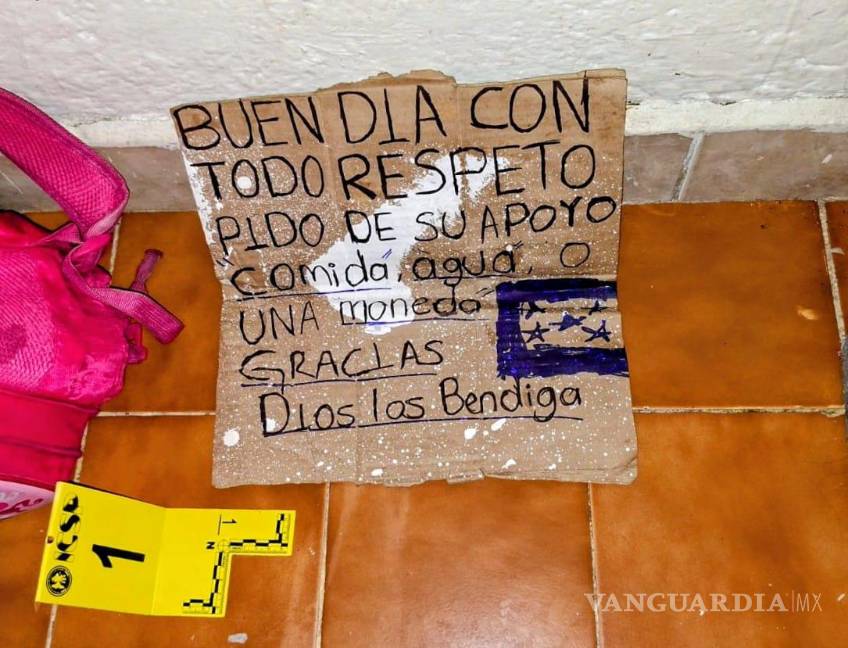 BUEN DIA CON
TODO RESPETO
PIDO DE SU APOYO
"comida, agua", O
UNA moneda"
GRACIAS
DIOS los Bendiga
ICSP
1
1
N
VANGUARDIA|MX